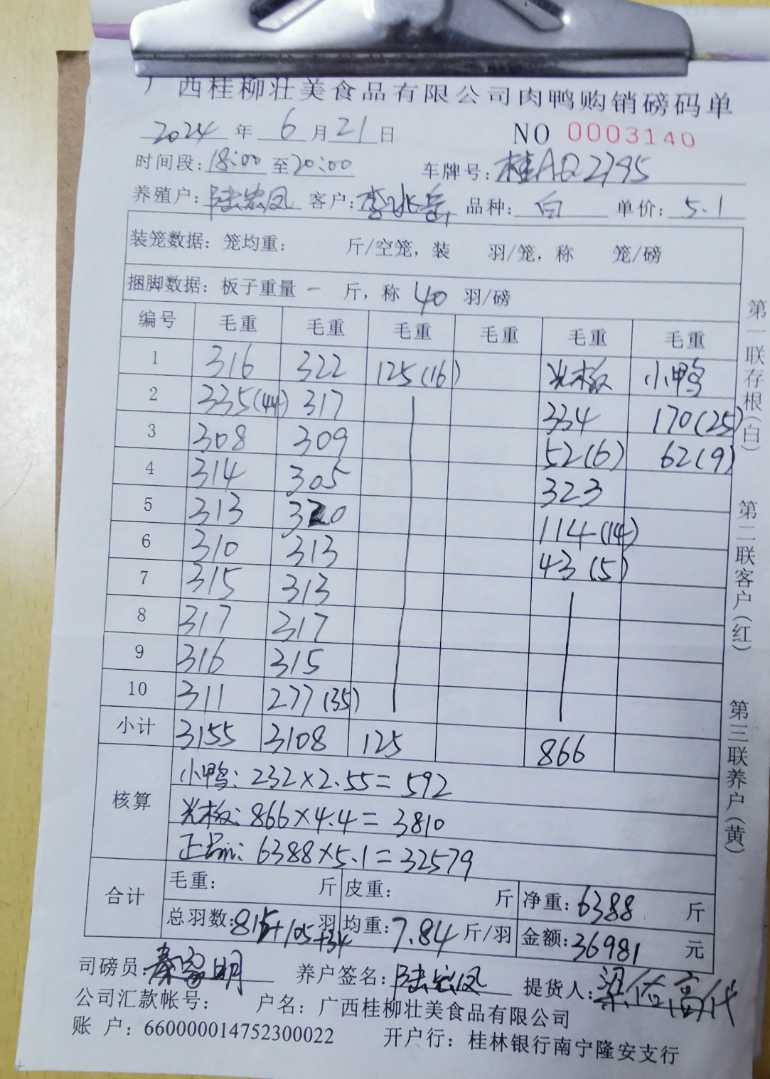 广西桂柳壮美食品有限公司肉鸭购销磅码单
2024 年 6 月 21 日 NO 0003140
时间段: 18:00 至 20:00 车牌号: 桂AQ2795
养殖户: 陆 凤 客户: 李兆岳 品种: 白 单价: 5.1
装笼数据: 笼均重: 斤/空笼, 装 羽/笼, 称 笼/磅
捆脚数据: 板子重量 一 斤, 称 40 羽/磅
编号 毛重 毛重 毛重 毛重 毛重 毛重
1 316 322 125(16) 光板 小鸭
2 335(44) 317 334 170(25)
3 308 309 52(6) 62(9)
4 314 305 323
5 313 320 114(14)
6 310 313 43(5)
7 315 313
8 317 317
9 316 315
10 311 277(35)
小计 3155 3108 125 866
核算
小鸭: 232×2.55=592
光板: 866×4.4=3810
正品: 6388×5.1=32579
合计
毛重: 斤 皮重: 斤 净重: 6388 斤
总羽数: 815+105+34 羽 均重: 7.84 斤/羽 金额: 36981 元
司磅员: 秦家明 养户签名: 陆 凤 提货人: 梁 高代
公司汇款帐号: 户名: 广西桂柳壮美食品有限公司
账 户: 660000014752300022 开户行: 桂林银行南宁隆安支行
第一联存根(白)
第二联客户(红)
第三联养户(黄)